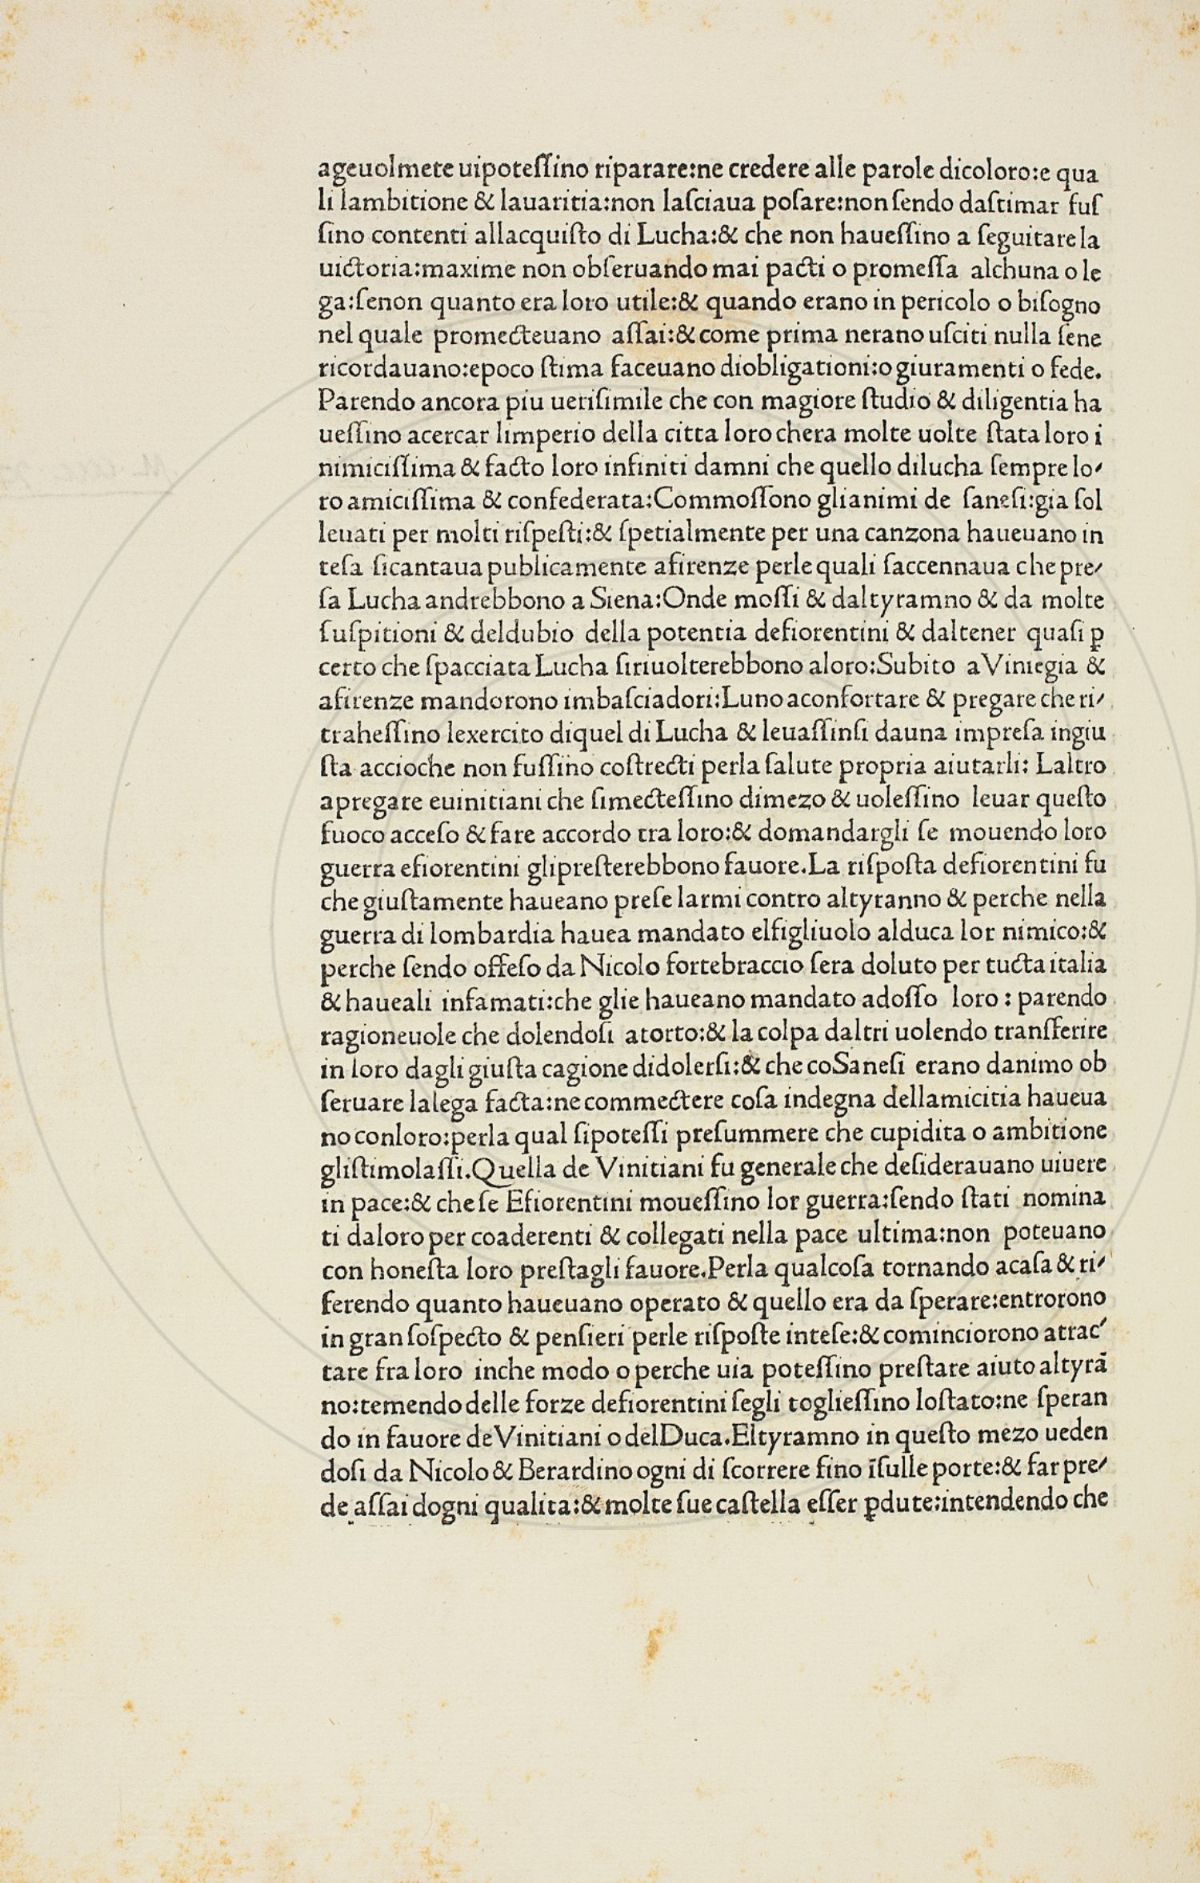 ageuolmete uipoteſſino riparare:ne credere alle parole dicoloro:e qua
li lambitione & lauaritia:non laſciaua poſare:non ſendo daſtimar fuſ
ſino contenti allacquiſto di Lucha:& che non haueſſino a ſeguitare la
uictoria:maxime non obſeruando mai pacti o promeſſa alchuna o le
ga:ſenon quanto era loro utile:& quando erano in pericolo o biſogno
nel quale promecteuano aſſai:& come prima nerano uſciti nulla ſene
ricordauano:epoco ſtima faceuano diobligationi:o giuramenti o fede.
Parendo ancora piu ueriſimile che con magiore ſtudio & diligentia ha
ueſſino acercar limperio della citta loro chera molte uolte ſtata loro i
nimiciſſima & facto loro infiniti damni che quello dilucha ſempre lo⸗
ro amiciſſima & confederata:Commoſſono glianimi de ſaneſi:gia ſol
leuati per molti riſpeſti:& ſpetialmente per una canzona haueuano in
teſa ſicantaua publicamente afirenze perle quali ſaccennaua che pre⸗
ſa Lucha andrebbono a Siena:Onde moſſi & daltyramno & da molte
ſuſpitioni & deldubio della potentia defiorentini & daltener quaſi ꝑ
certo che ſpacciata Lucha ſiriuolterebbono aloro:Subito a Viniegia &
afirenze mandorono imbaſciadori:Luno aconfortare & pregare che ri⸗
traheſſino lexercito diquel di Lucha & leuaſſinſi dauna impreſa ingiu
ſta accioche non fuſſino coſtrecti perla ſalute propria aiutarli: Laltro
apregare euinitiani che ſimecteſſino dimezo & uoleſſino leuar queſto
fuoco acceſo & fare accordo tra loro:& domandargli ſe mouendo loro
guerra efiorentini glipreſterebbono fauore.La riſpoſta defiorentini fu
che giuſtamente haueano preſe larmi contro altyranno & perche nella
guerra di lombardia hauea mandato elfigliuolo alduca lor nimico:&
perche ſendo offeſo da Nicolo fortebraccio ſera doluto per tucta italia
& haueali infamati:che glie haueano mandato adoſſo loro: parendo
ragioneuole che dolendoſi atorto:& la colpa daltri uolendo tranſferire
in loro dagli giuſta cagione didolerſi:& che coSaneſi erano danimo ob
ſeruare lalega facta:ne commectere coſa indegna dellamicitia haueua
no conloro:perla qual ſipoteſſi preſummere che cupidita o ambitione
gliſtimolaſſi.Quella de Vinitiani fu generale che deſiderauano uiuere
in pace:& che ſe Efiorentini moueſſino lor guerra:ſendo ſtati nomina
ti daloro per coaderenti & collegati nella pace ultima:non poteuano
con honeſta loro preſtagli fauore.Perla qualcoſa tornando acaſa & ri⸗
ferendo quanto haueuano operato & quello era da ſperare:entrorono
in gran ſoſpecto & penſieri perle riſpoſte inteſe:& cominciorono atrac⸗
tare fra loro inche modo o perche uia poteſſino preſtare aiuto altyrā
no:temendo delle forze defiorentini ſegli toglieſſino loſtato:ne ſperan
do in fauore deVinitiani o delDuca.Eltyramno in queſto mezo ueden
doſi da Nicolo & Berardino ogni di ſcorrere fino īſulle porte:& far pre⸗
de aſſai dogni qualita:& molte ſue caſtella eſſer ꝑdute:intendendo che